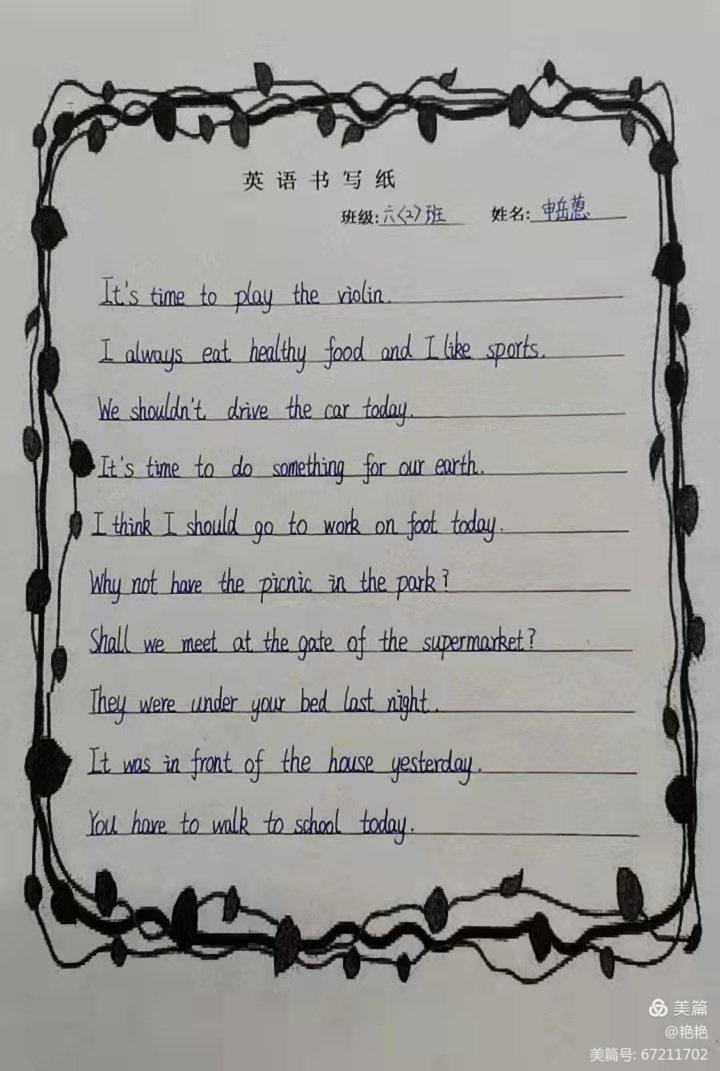 英语书写纸
班级:六(2)班 姓名:申岳葱
It's time to play the violin.
I always eat healthy food and I like sports.
We shouldn't drive the car today.
It's time to do something for our earth.
I think I should go to work on foot today.
Why not have the picnic in the park?
Shall we meet at the gate of the supermarket?
They were under your bed last night.
It was in front of the house yesterday.
You have to walk to school today.
美篇
@艳艳
美篇号: 67211702